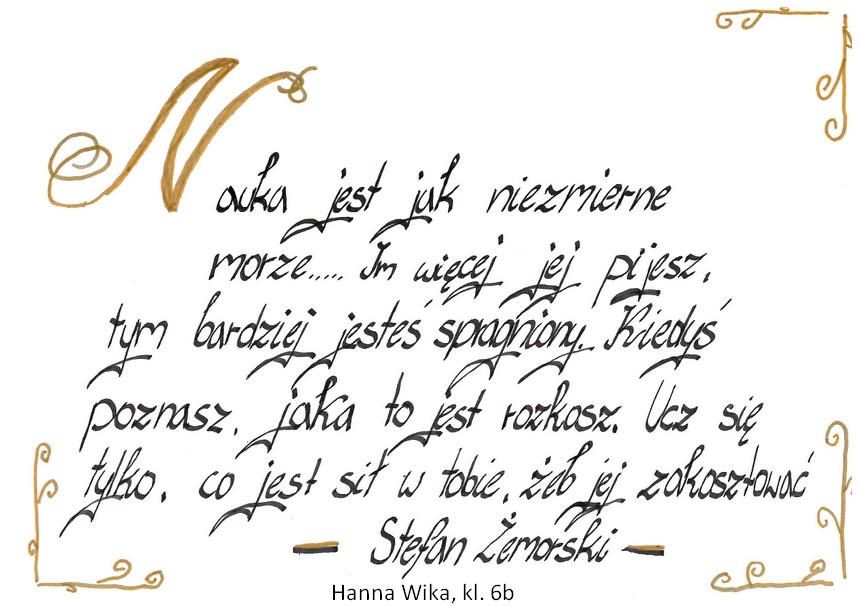 Nauka jest jak niezmierne
morze..... Im więcej jej pijesz,
tym bardziej jesteś spragniony. Kiedyś
poznasz, jaka to jest rozkosz. Ucz się
tylko, co jest sił w tobie, żeb jej zakosztować
— Stefan Żemorski —
Hanna Wika, kl. 6b